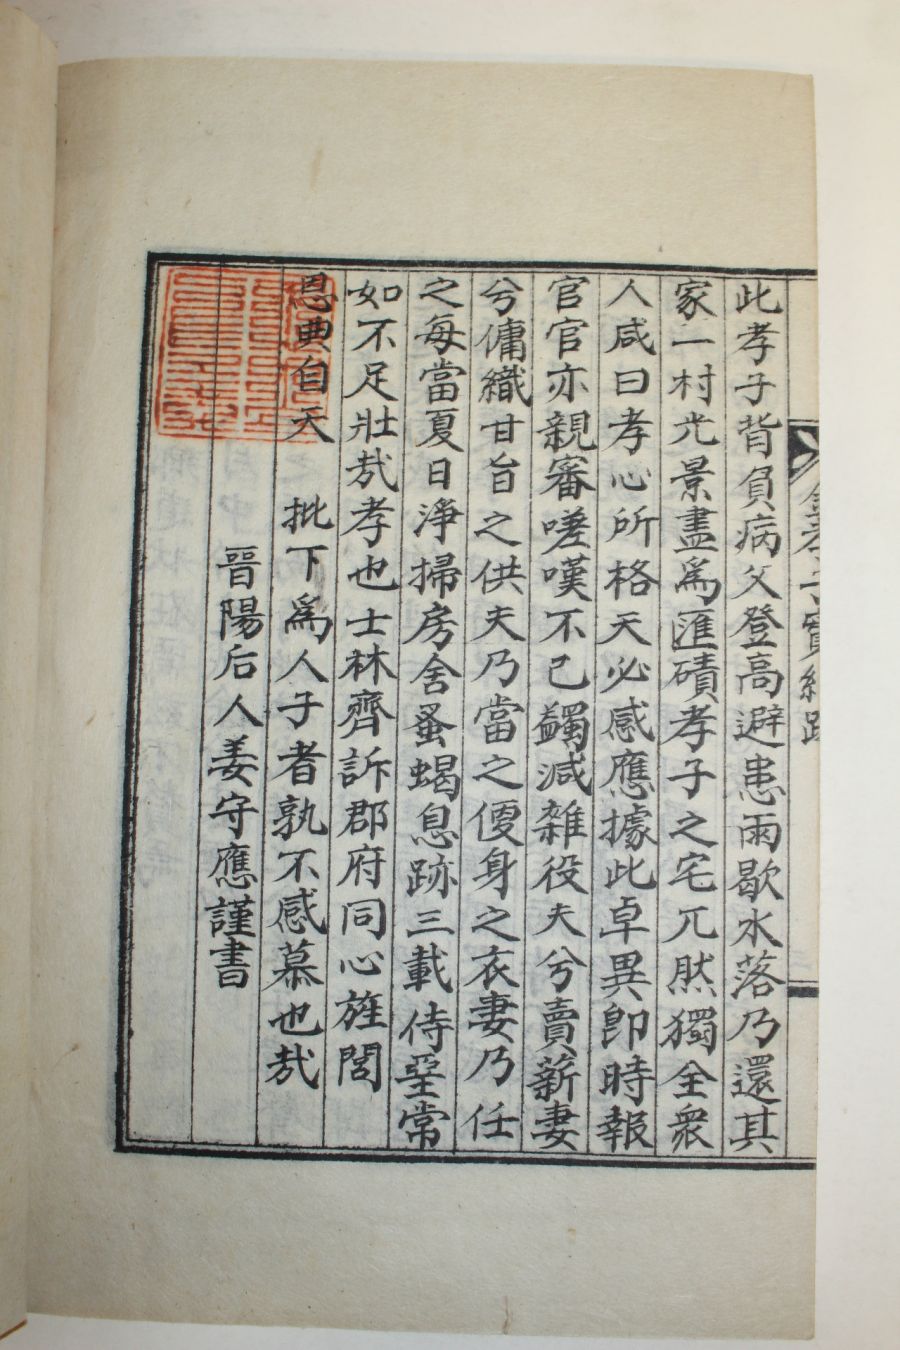 孝子實紀跋
此孝子背負病父登高避患雨歇水落乃還其
家一村光景盡爲匯磧孝子之宅兀然獨全衆
人咸曰孝心所格天必感應據此卓異卽時報
官官亦親審嗟嘆不已蠲減雜役夫兮賣薪妻
兮傭織甘旨之供夫乃當之便身之衣妻乃任
之每當夏日淨掃房舍蚤蝎息跡三載侍堊常
如不足壯㦲孝也士林齊訴郡府同心旌閭
恩典自天 批下爲人子者孰不感慕也㦲
晉陽后人姜守應謹書